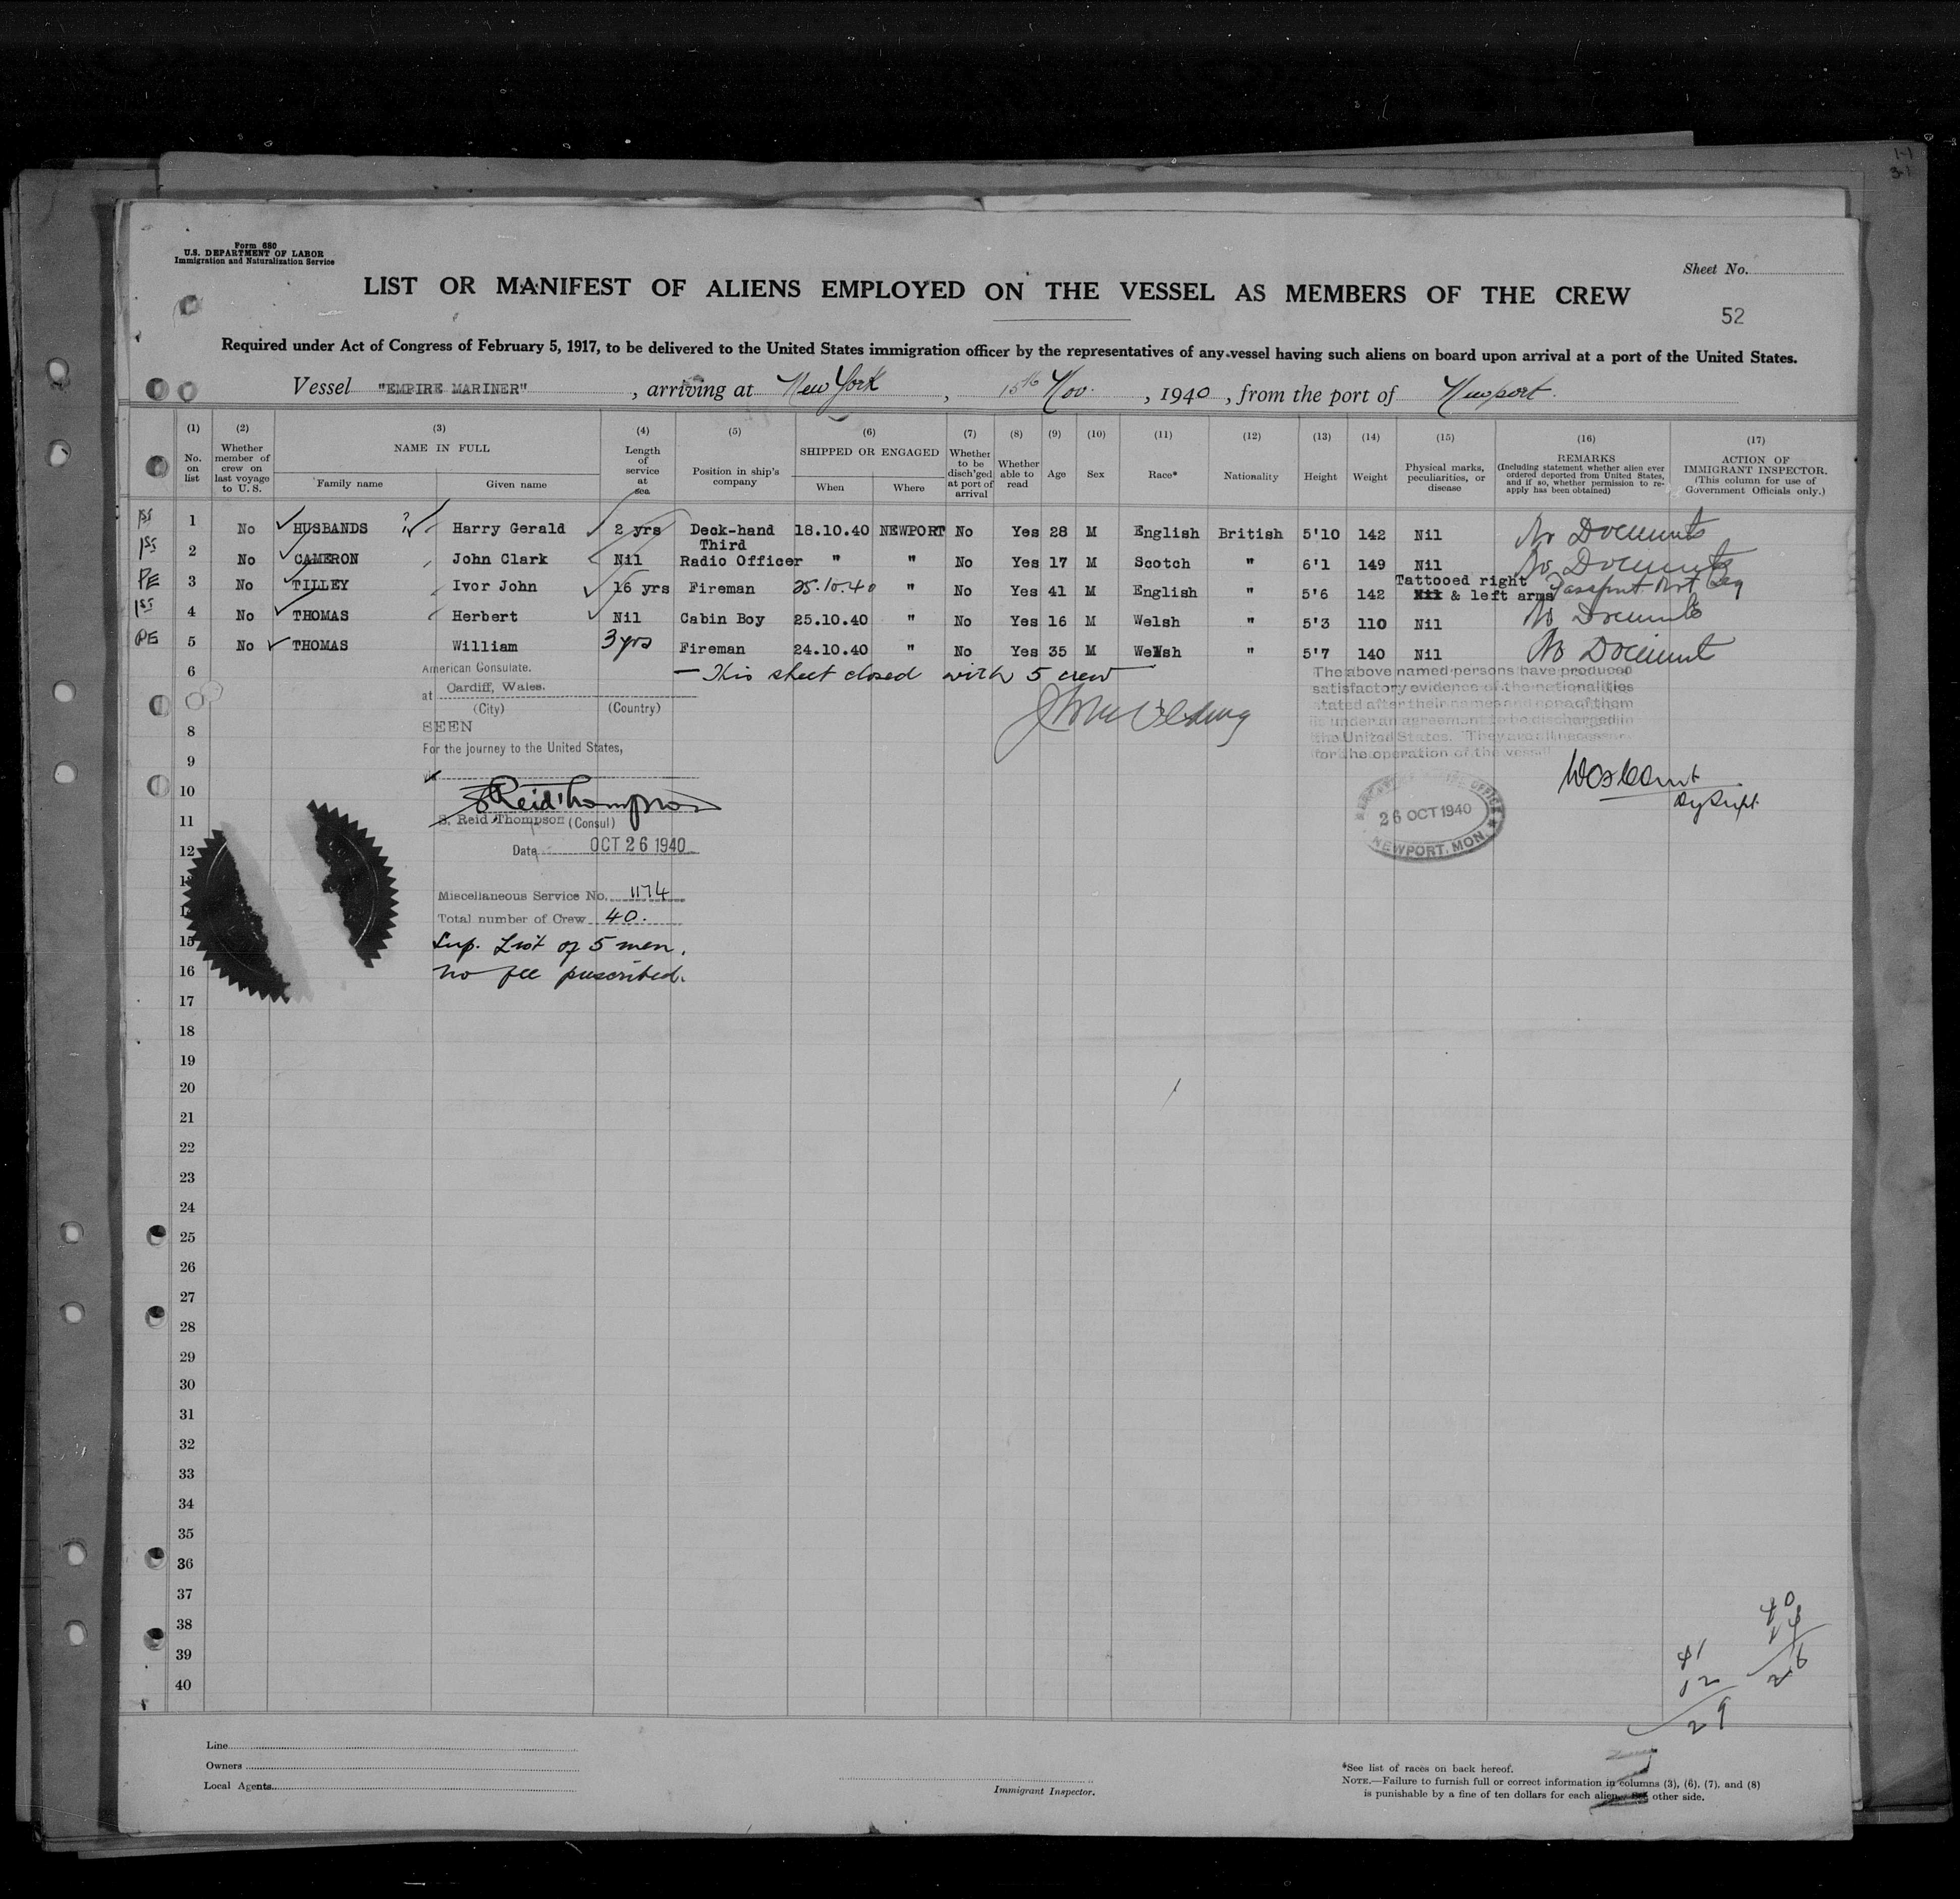 1-1
3-1
Form 680
U.S. DEPARTMENT OF LABOR
Immigration and Naturalization Service
Sheet No.
LIST OR MANIFEST OF ALIENS EMPLOYED ON THE VESSEL AS MEMBERS OF THE CREW
52
Required under Act of Congress of February 5, 1917, to be delivered to the United States immigration officer by the representatives of any vessel having such aliens on board upon arrival at a port of the United States.
Vessel "EMPIRE MARINER", arriving at New York, 15th Nov., 1940, from the port of Newport.
(1) No. on list (2) Whether member of crew on last voyage to U. S. (3) NAME IN FULL Family name Given name (4) Length of service at sea (5) Position in ship's company (6) SHIPPED OR ENGAGED When Where (7) Whether to be disch'ged at port of arrival (8) Whether able to read (9) Age (10) Sex (11) Race* (12) Nationality (13) Height (14) Weight (15) Physical marks, peculiarities, or disease (16) REMARKS (Including statement whether alien ever ordered deported from United States, and if so, whether permission to reapply has been obtained) (17) ACTION OF IMMIGRANT INSPECTOR. (This column for use of Government Officials only.)
1st 1 No HUSBANDS Harry Gerald 2 yrs Deck-hand 18.10.40 NEWPORT No Yes 28 M English British 5'10 142 Nil No Documents
1st 2 No CAMERON John Clark Nil Third Radio Officer " " No Yes 17 M Scotch " 6'1 149 Nil No Documents
PE 3 No TILLEY Ivor John 16 yrs Fireman 25.10.40 " No Yes 41 M English " 5'6 142 Tattooed right Nil & left arms Passport
1st 4 No THOMAS Herbert Nil Cabin Boy 25.10.40 " No Yes 16 M Welsh " 5'3 110 Nil No Documents
PE 5 No THOMAS William 3 yrs Fireman 24.10.40 " No Yes 35 M Welsh " 5'7 140 Nil No Document
6 — This sheet closed with 5 crew
American Consulate.
at Cardiff, Wales.
(City) (Country)
SEEN
For the journey to the United States,
S. Reid Thompson
S. Reid Thompson (Consul)
Date OCT 26 1940
Miscellaneous Service No. 1174
Total number of Crew 40.
Sup. List of 5 men.
no fee prescribed.
The above named persons have produced
satisfactory evidence of the nationalities
stated after their names and none of them
is under an agreement to be discharged in
the United States. They are all necessary
for the operation of the vessel
Dy Supt.
OFFICE
26 OCT 1940
NEWPORT, MON.
8
9
10
11
12
13
14
15
16
17
18
19
20
21
22
23
24
25
26
27
28
29
30
31
32
33
34
35
36
37
38
39
40
40
14
26
41
12
29
Line
Owners
Local Agents
Immigrant Inspector.
*See list of races on back hereof.
NOTE.—Failure to furnish full or correct information in columns (3), (6), (7), and (8)
is punishable by a fine of ten dollars for each alien. See other side.